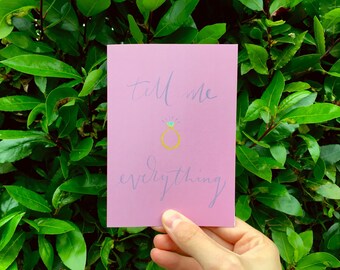 tell me
everything